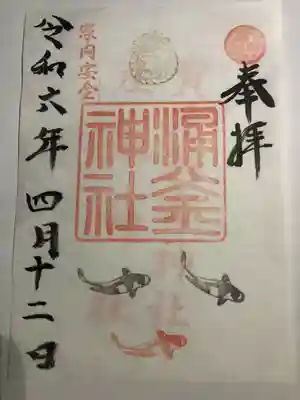 奉拝
涌釜
神社
家内安全
令和六年 四月十二日